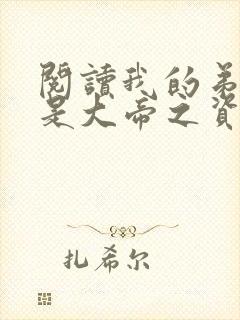 閱讀我的弟
是大帝之資
扎希尔